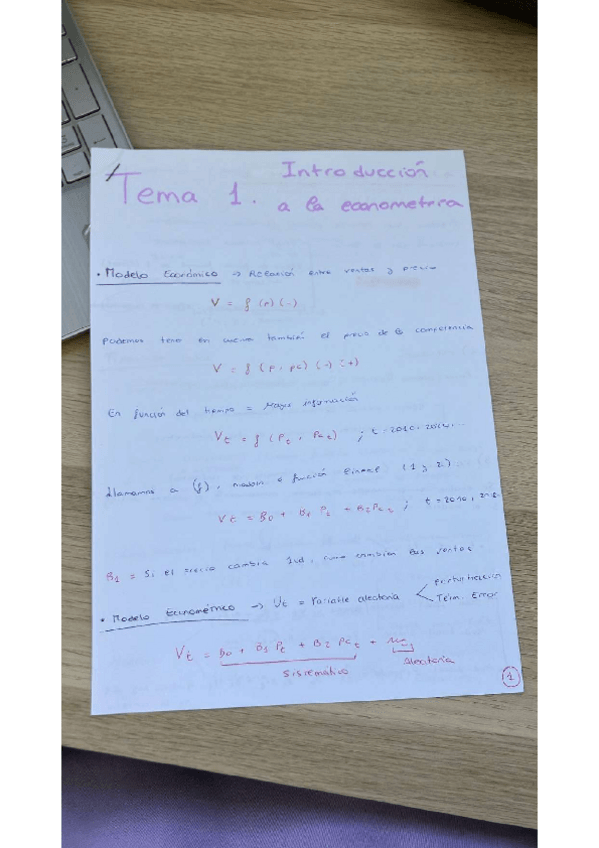 Introducción
Tema 1. a la econometría
• Modelo Económico → Relación entre ventas y precio
V = f (p) (-)
Podemos tener en cuenta también el precio de la competencia
V = f (p, pc) (-) (+)
En función del tiempo = Mayor información
Vt = f (Pt, Pct) ; t = 2010, 2011...
Llamamos a (f), función lineal (1 y 2)
Vt = B0 + B1 Pt + B2Pct ; t = 2010,
B1 = Si el precio cambia 1ud, como cambian las ventas
• Modelo Econométrico → Ut = Variable aleatoria
Perturbación
Term. Error
Vt = B0 + B1 Pt + B2 Pct +
Sistemático
Aleatoria
1